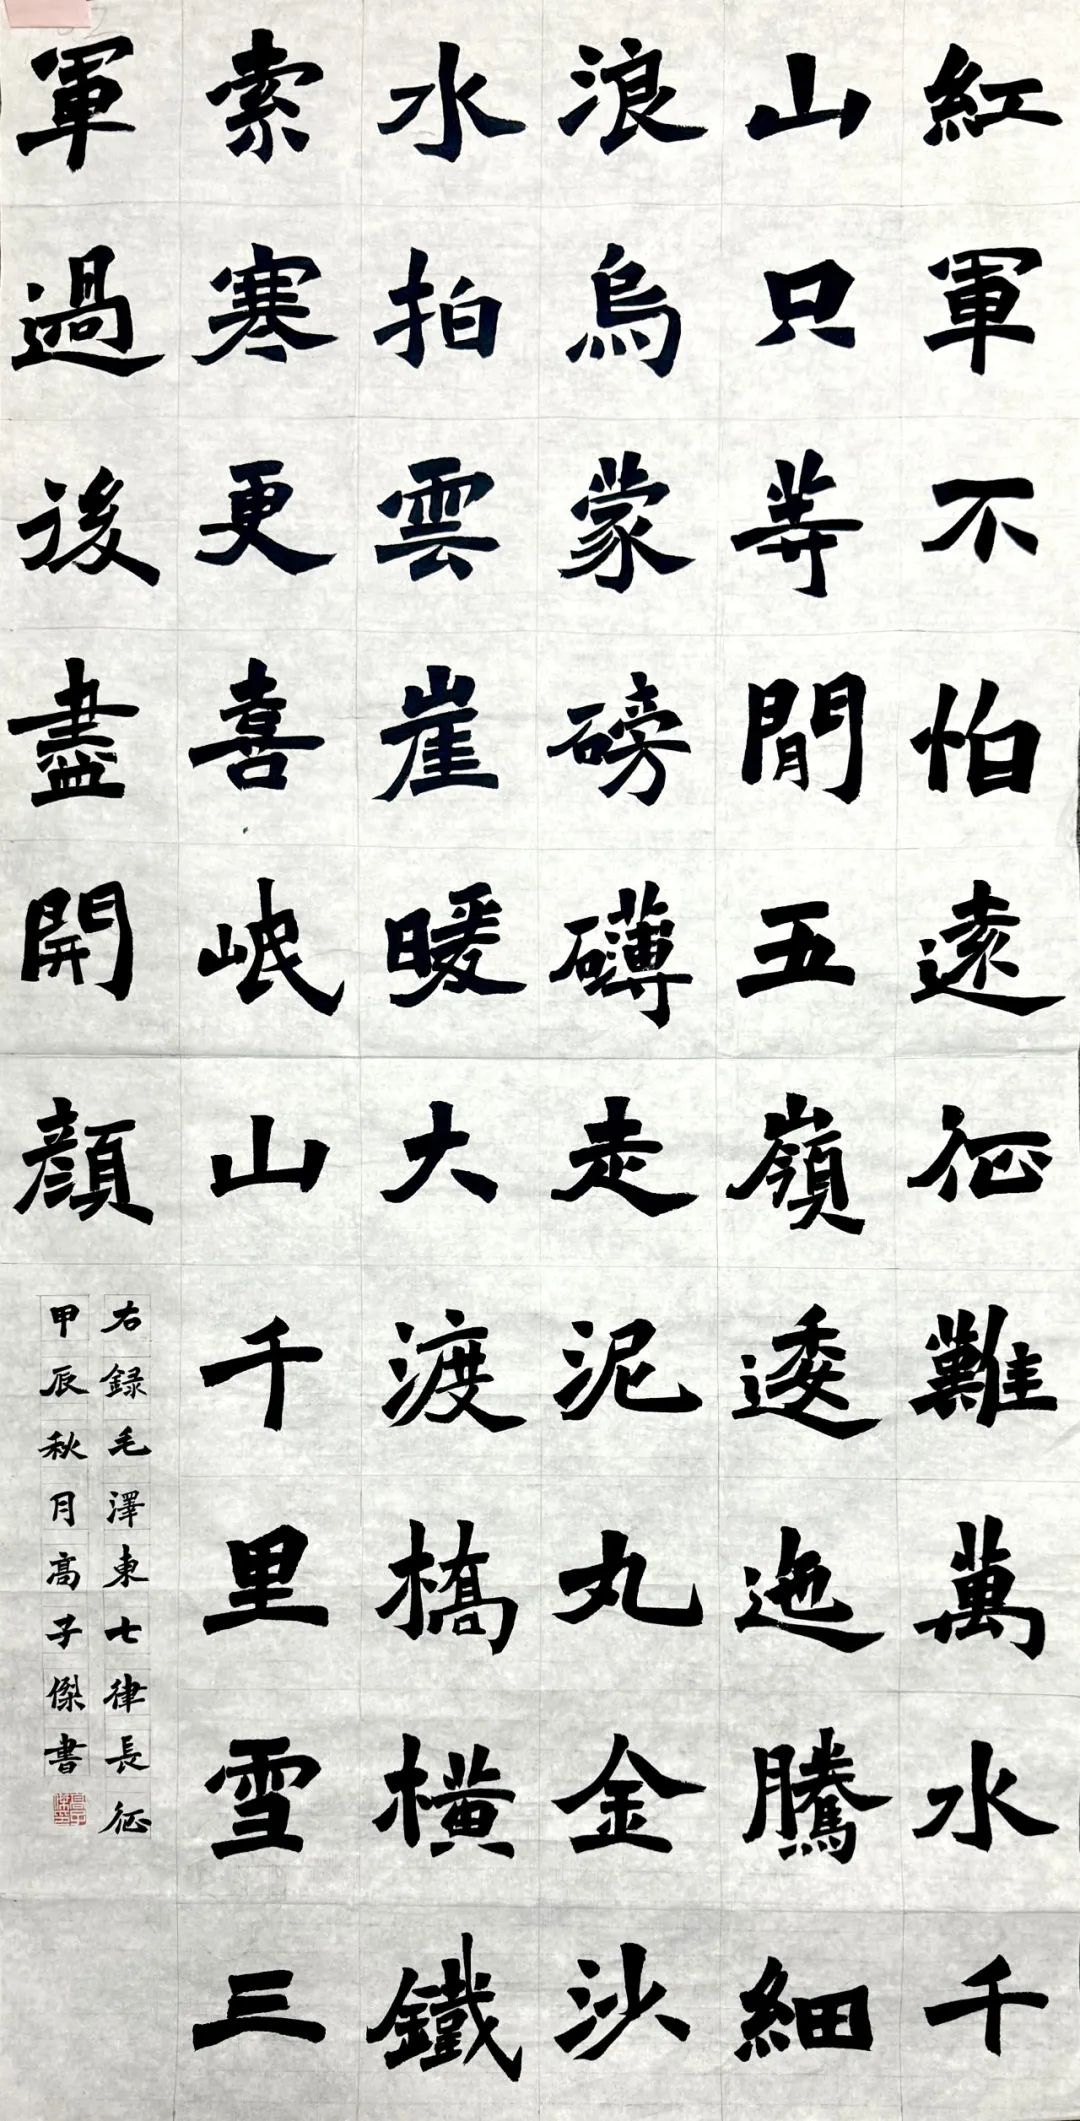 紅軍不怕遠征難萬水千
山只等閒五嶺逶迤騰細
浪烏蒙磅礴走泥丸金沙
水拍雲崖暖大渡橋橫鐵
索寒更喜岷山千里雪三
軍過後盡開顔
右録毛澤東七律長征
甲辰秋月高子傑書